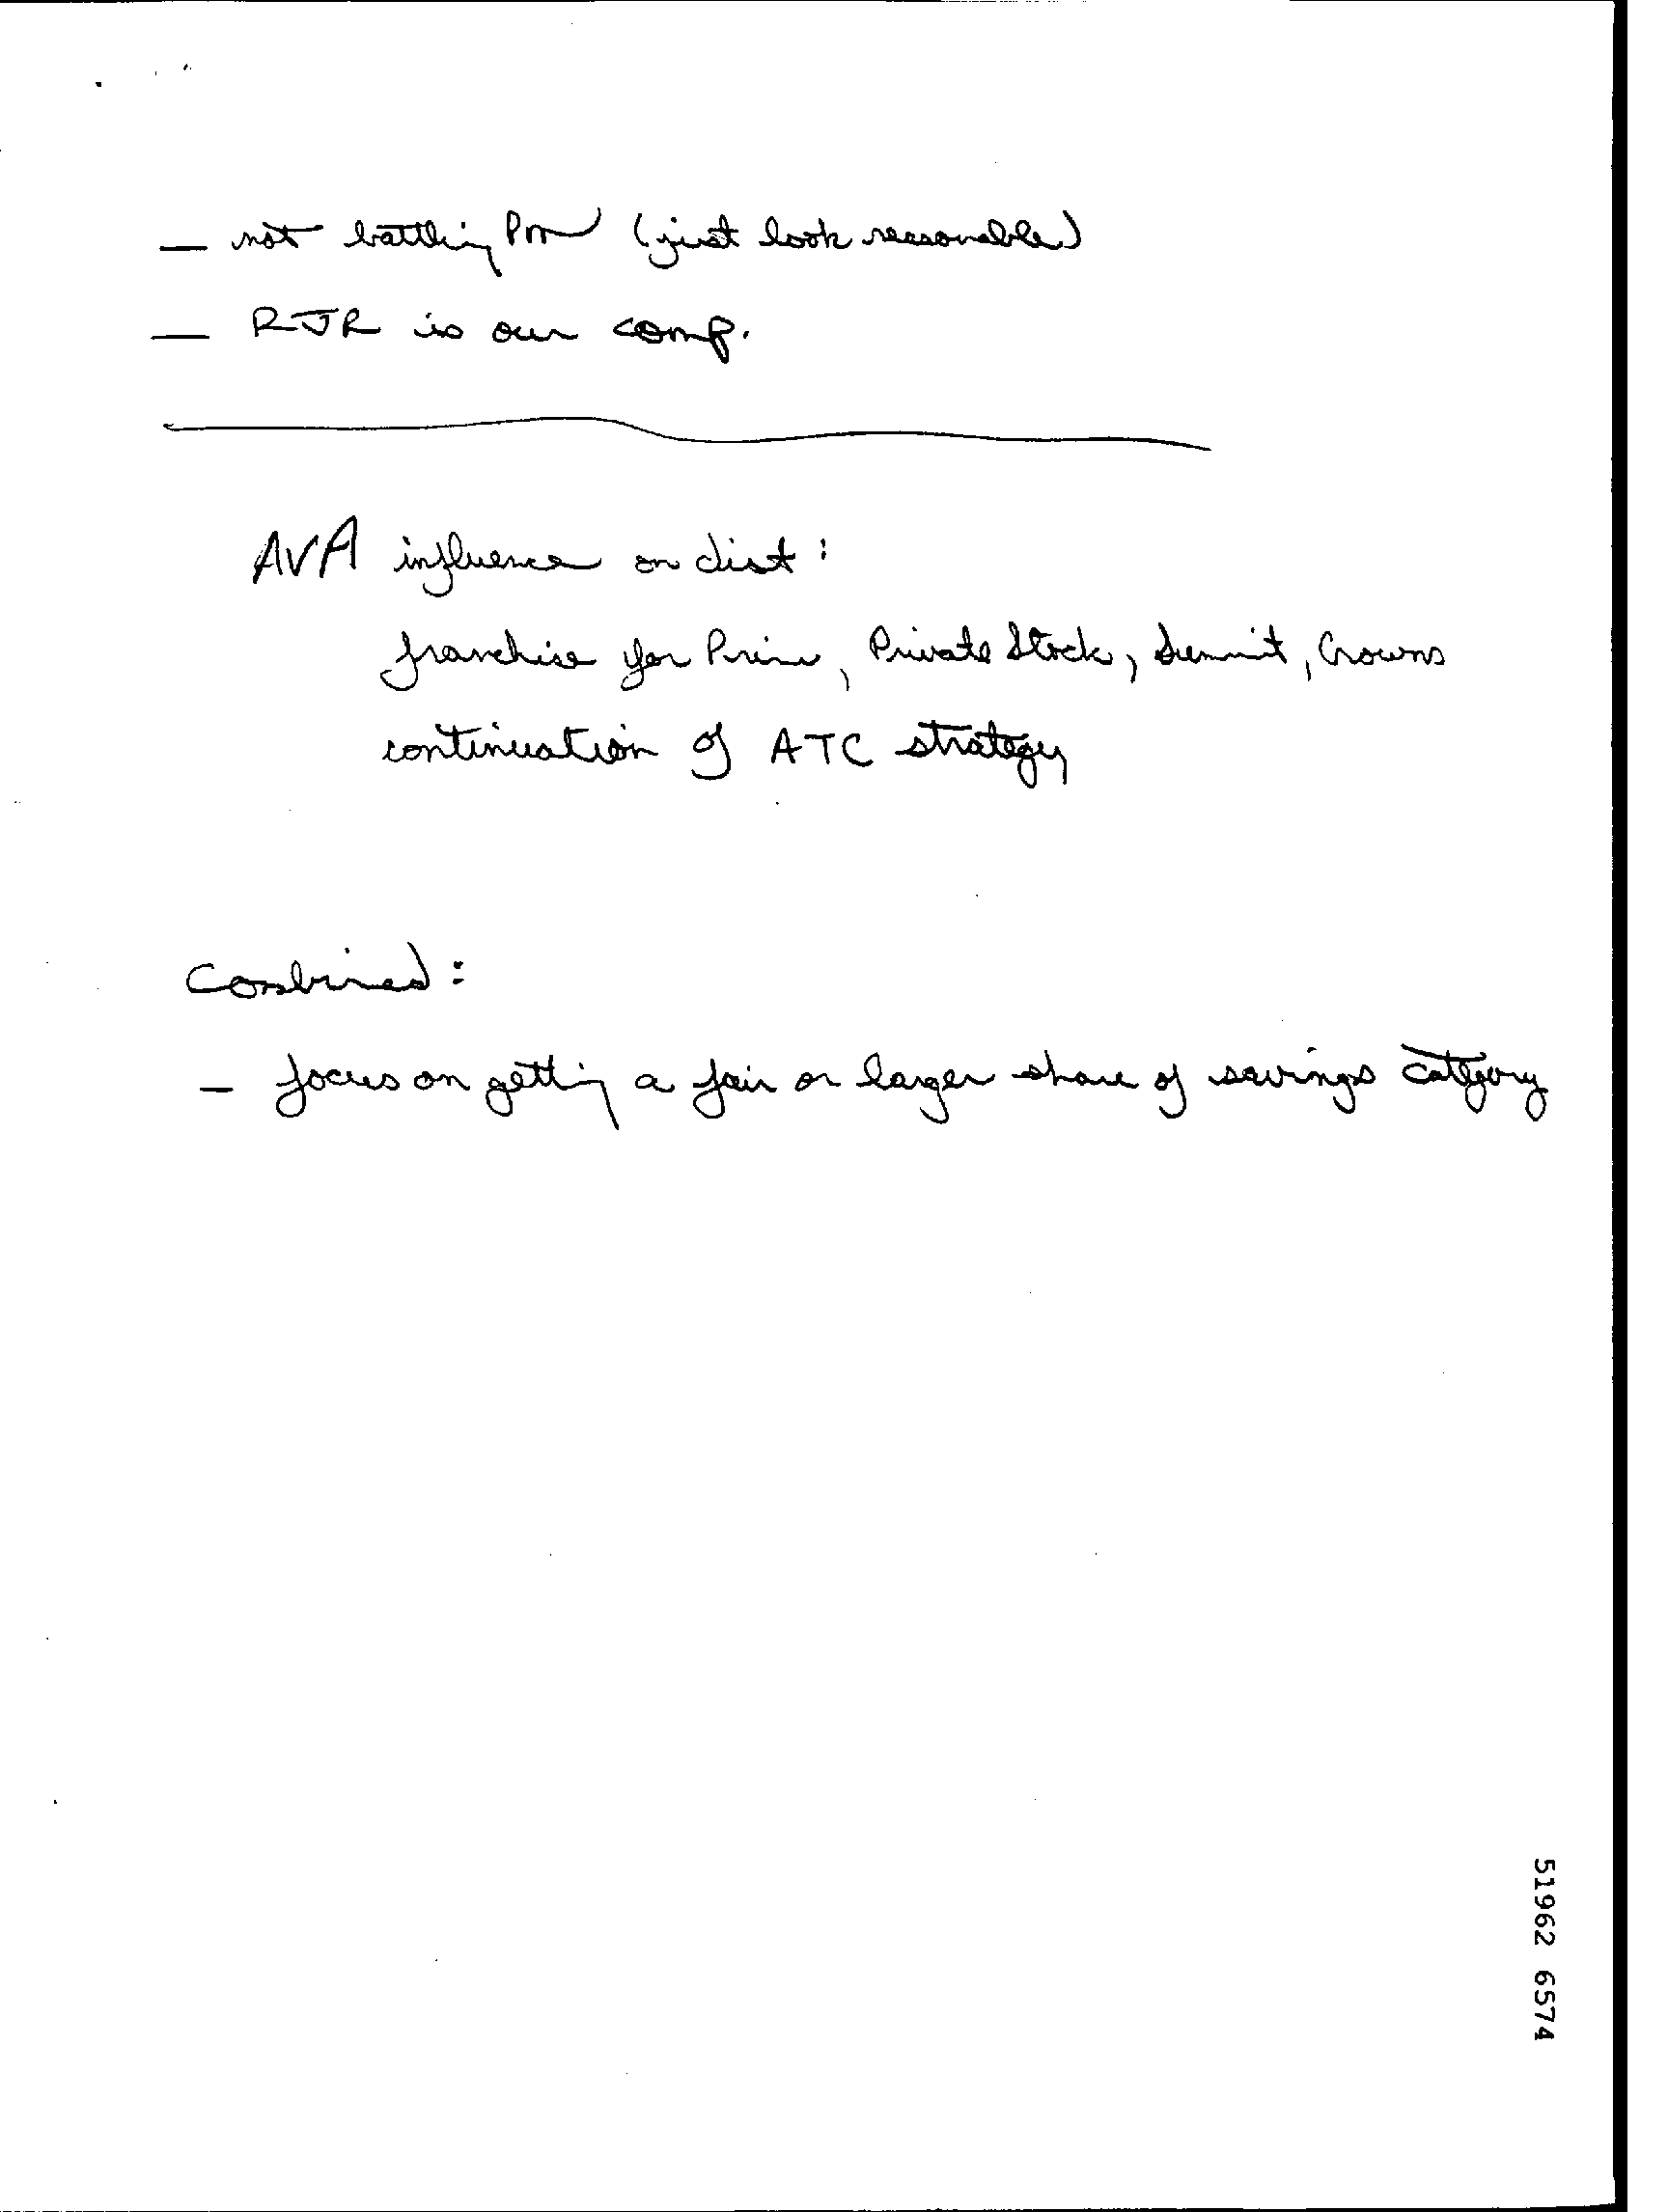 — not battling PM (just look reasonable)
— RJR is our comp.
AVA influence on dist:
franchise for Prime, Private Stock, Summit, Crowns
continuation of ATC strategy
Combined:
- focus on getting a fair or larger share of savings category
51962 6574